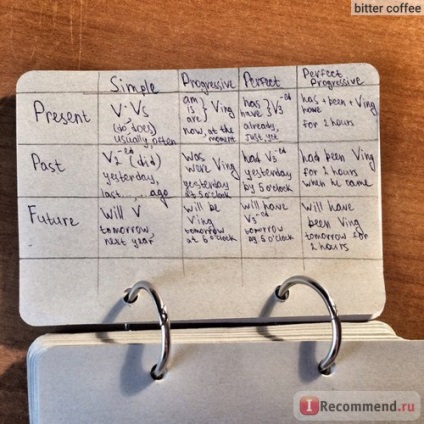 bitter coffee
Simple Progressive Perfect Perfect Progressive
Present
V · Vs
(do, does)
usually, often
am
is
are } Ving
now, at the moment
has
have } V3-ed
already,
just, yet
has + been + Ving
have
for 2 hours
Past
V2-ed (did)
yesterday,
last ... ago
was
were Ving
yesterday
at 5 o'clock
had V3-ed
yesterday
by 5 o'clock
had been Ving
for 2 hours
when he came
Future
will V
tomorrow,
next year
will be
Ving
tomorrow
at 5 o'clock
will have
V3-ed
tomorrow
by 5 o'clock
will have
been Ving
tomorrow for
2 hours
IRecommend.ru